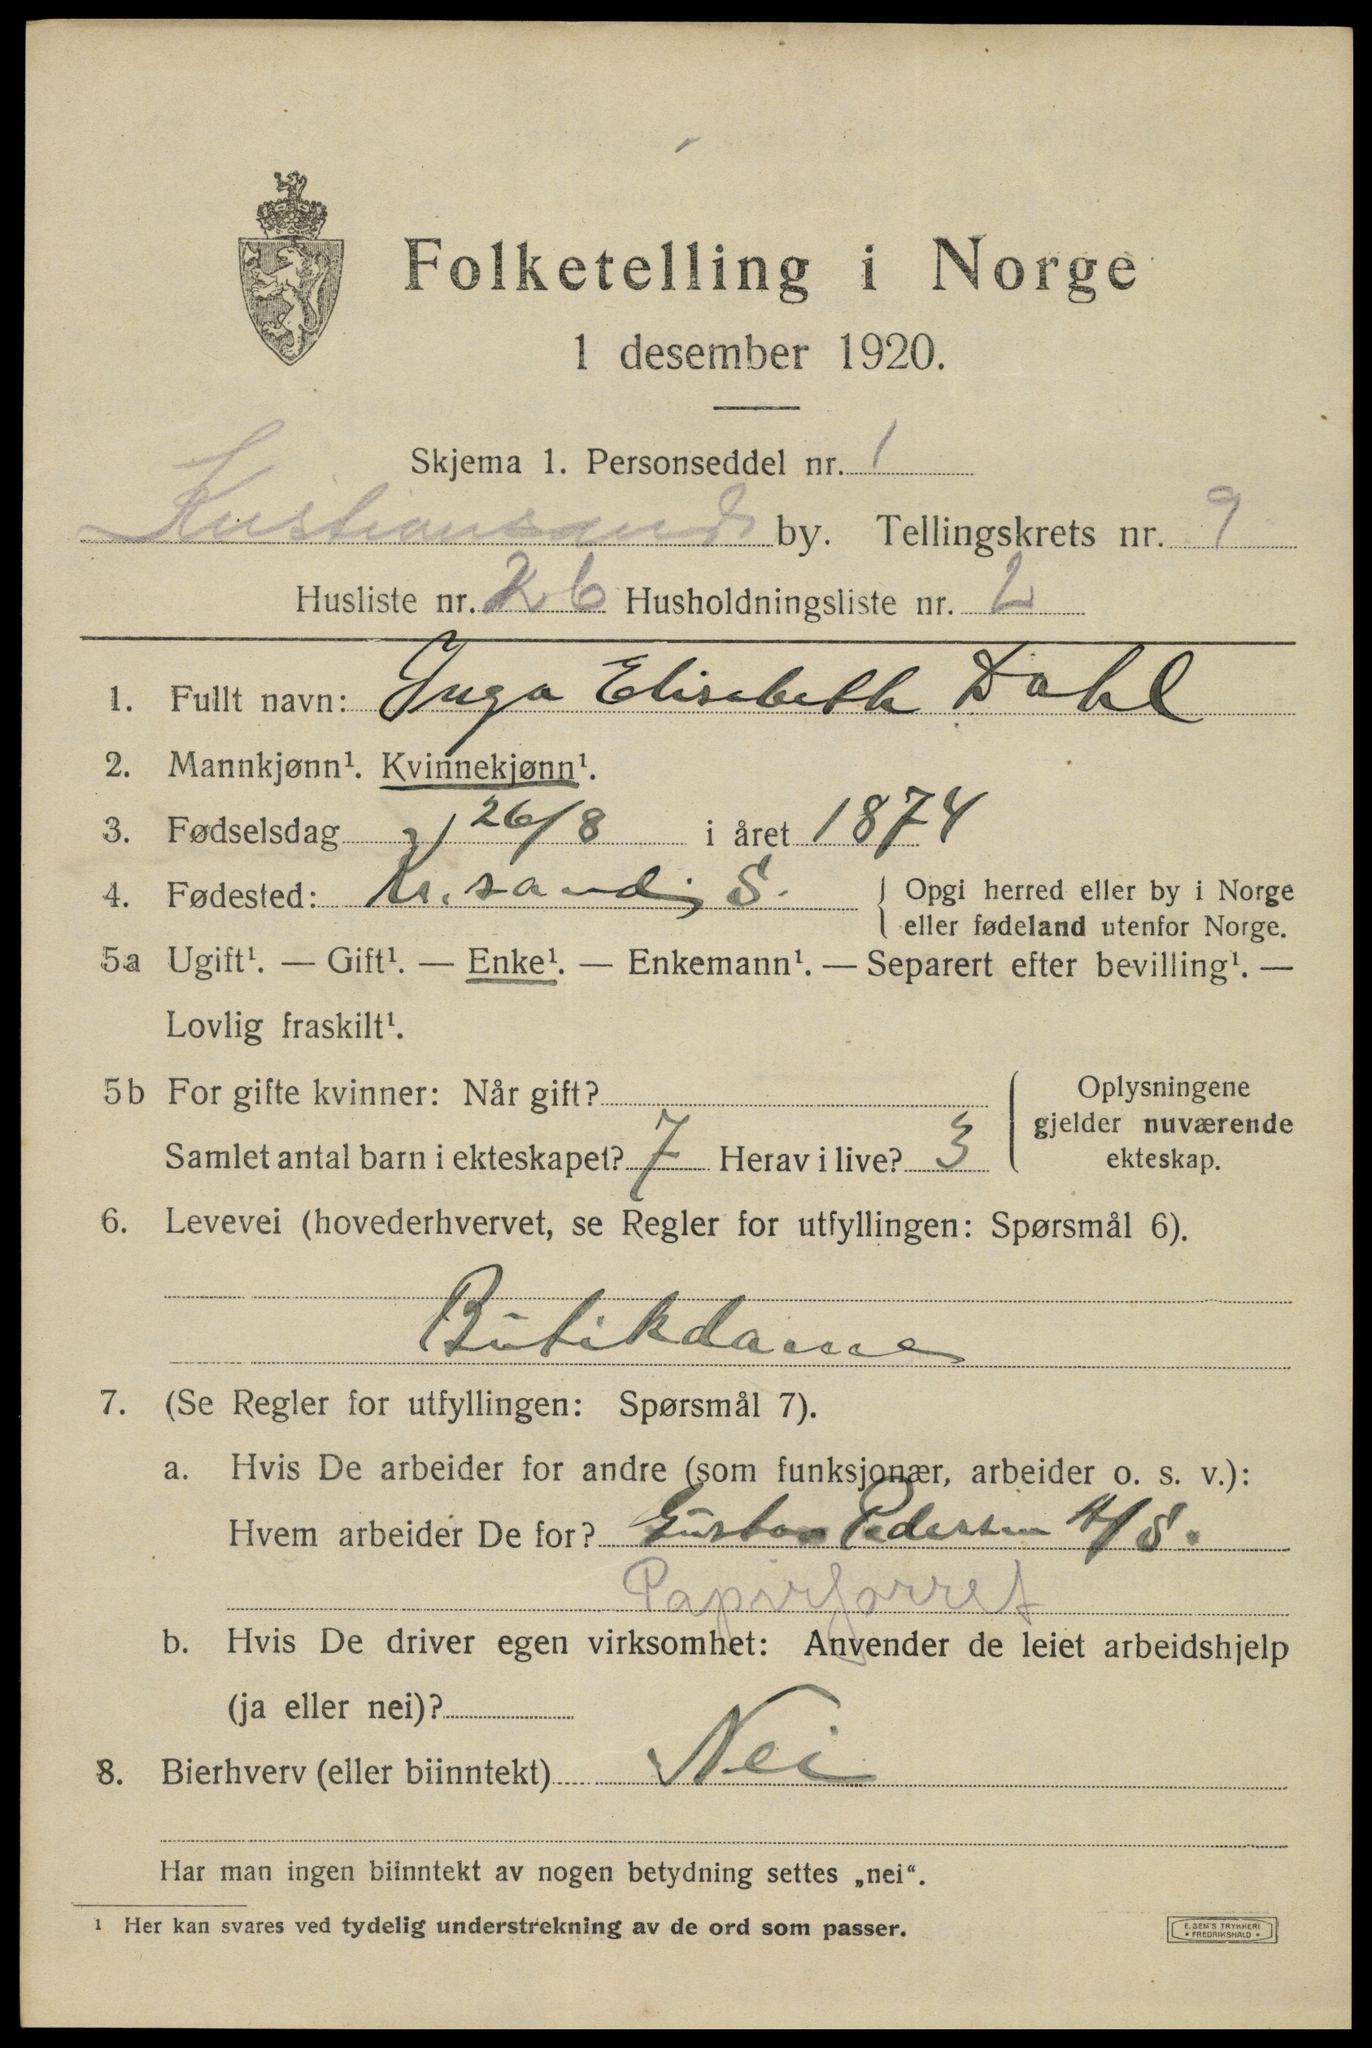 Folketelling i Norge
1 desember 1920.
Skjema 1. Personseddel nr. 1
Kristiansand by. Tellingskrets nr. 9
Husliste nr. 26 Husholdningsliste nr. 2
1. Fullt navn: Inga Elisabeth Dahl
2. Mannkjønn¹. Kvinnekjønn¹.
3. Fødselsdag 26/8 i året 1874
4. Fødested: Kr.sand S. Opgi herred eller by i Norge
eller fødeland utenfor Norge.
5a Ugift¹. — Gift¹. — Enke¹. — Enkemann¹. — Separert efter bevilling¹. —
Lovlig fraskilt¹.
5b For gifte kvinner: Når gift? Oplysningene
gjelder nuværende
Samlet antal barn i ekteskapet? 7 Herav i live? 3 ekteskap.
6. Levevei (hovederhvervet, se Regler for utfyllingen: Spørsmål 6).
Butikdame
7. (Se Regler for utfyllingen: Spørsmål 7).
a. Hvis De arbeider for andre (som funksjonær, arbeider o. s. v.):
Hvem arbeider De for? Gustav Pedersen A/S.
Papirforret
b. Hvis De driver egen virksomhet: Anvender de leiet arbeidshjelp
(ja eller nei)?
8. Bierhverv (eller biinntekt) Nei
Har man ingen biinntekt av nogen betydning settes „nei“.
¹ Her kan svares ved tydelig understrekning av de ord som passer.
E. SEM'S TRYKKERI
• FREDRIKSHALD •